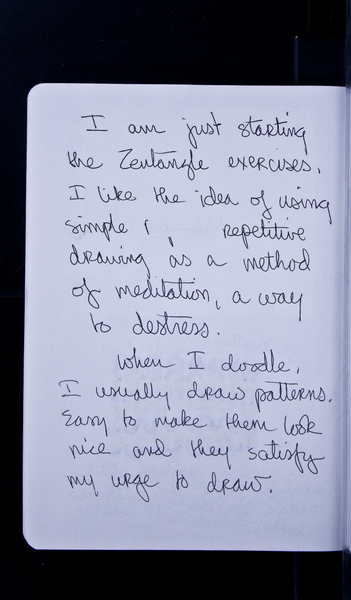 I am just starting
the Zentangle exercises.
I like the idea of using
simple repetitive
drawing as a method
of meditation, a way
to destress.
When I doodle,
I usually draw patterns.
Easy to make them look
nice and they satisfy
my urge to draw.